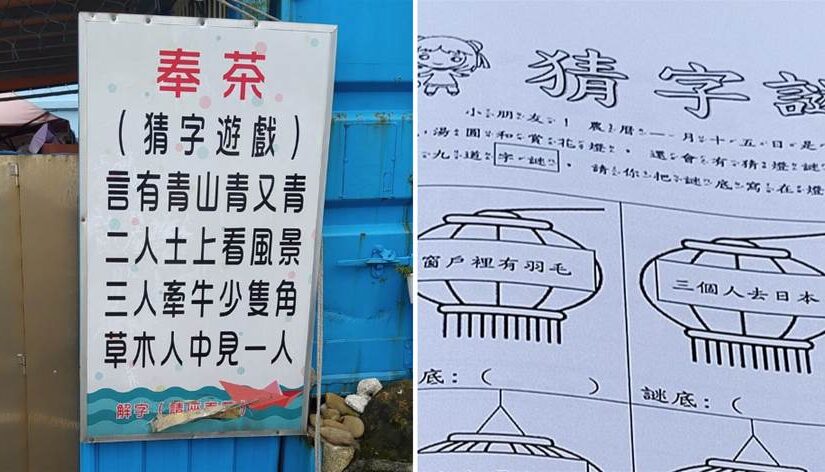 奉茶
(猜字遊戲)
言有青山青又青
二人土上看風景
三人牽牛少隻角
草木人中見一人
解字(請
猜字謎
小朋友！農曆一月十五日是
湯圓和賞花燈，還會有猜燈謎
九道字謎，請你把謎底寫在燈
窗戶裡有羽毛
三個人去日本
底：( )
謎底：(